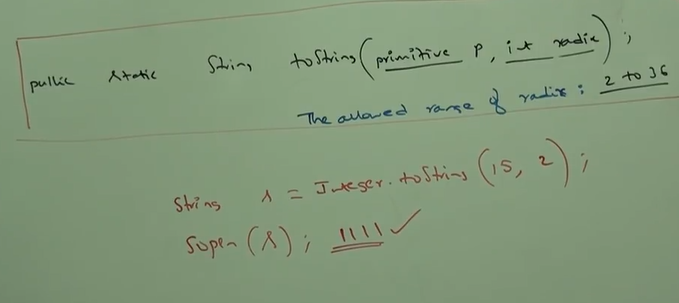 public static String toString(primitive p, int radix);
The allowed range of radix: 2 to 36
String s = Integer.toString(15, 2);
Sopln(s); 1111 ✓